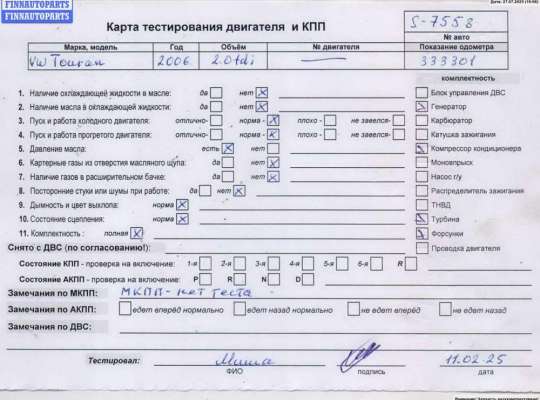 Дата: 27.07.2025
FINNAUTOPARTS
FINNAUTOPARTS
Карта тестирования двигателя и КПП
S-7558
№ авто
Марка, модель Год Объём № двигателя Показание одометра
VW Touran 2006 2.0tdi — 333301
комплектность
1. Наличие охлаждающей жидкости в масле: да нет X Блок управления ДВС
2. Наличие масла в охлаждающей жидкости: да нет X Генератор
3. Пуск и работа холодного двигателя: отлично- норма - X плохо - не завелся- Карбюратор
4. Пуск и работа прогретого двигателя: отлично- норма - X плохо - не завелся- Катушка зажигания
5. Давление масла: есть X нет Компрессор кондиционера
6. Картерные газы из отверстия масляного щупа: да нет X Моновпрыск
7. Наличие газов в расширительном бачке: да нет X Насос г/у
8. Посторонние стуки или шумы при работе: да нет X Распределитель зажигания
9. Дымность и цвет выхлопа: норма X ТНВД
10. Состояние сцепления: норма X Турбина
11. Комплектность : полная X Форсунки
Снято с ДВС (по согласованию!): Проводка двигателя
Состояние КПП - проверка на включение: 1-я 2-я 3-я 4-я 5-я 6-я R
Состояние АКПП - проверка на включение: P R N D
Замечания по МКПП: МКПП - нет теста
Замечания по АКПП: едет вперёд нормально едет назад нормально не едет вперёд не едет назад
Замечания по ДВС:
Тестировал: Миша 11.02.25
ФИО подпись дата